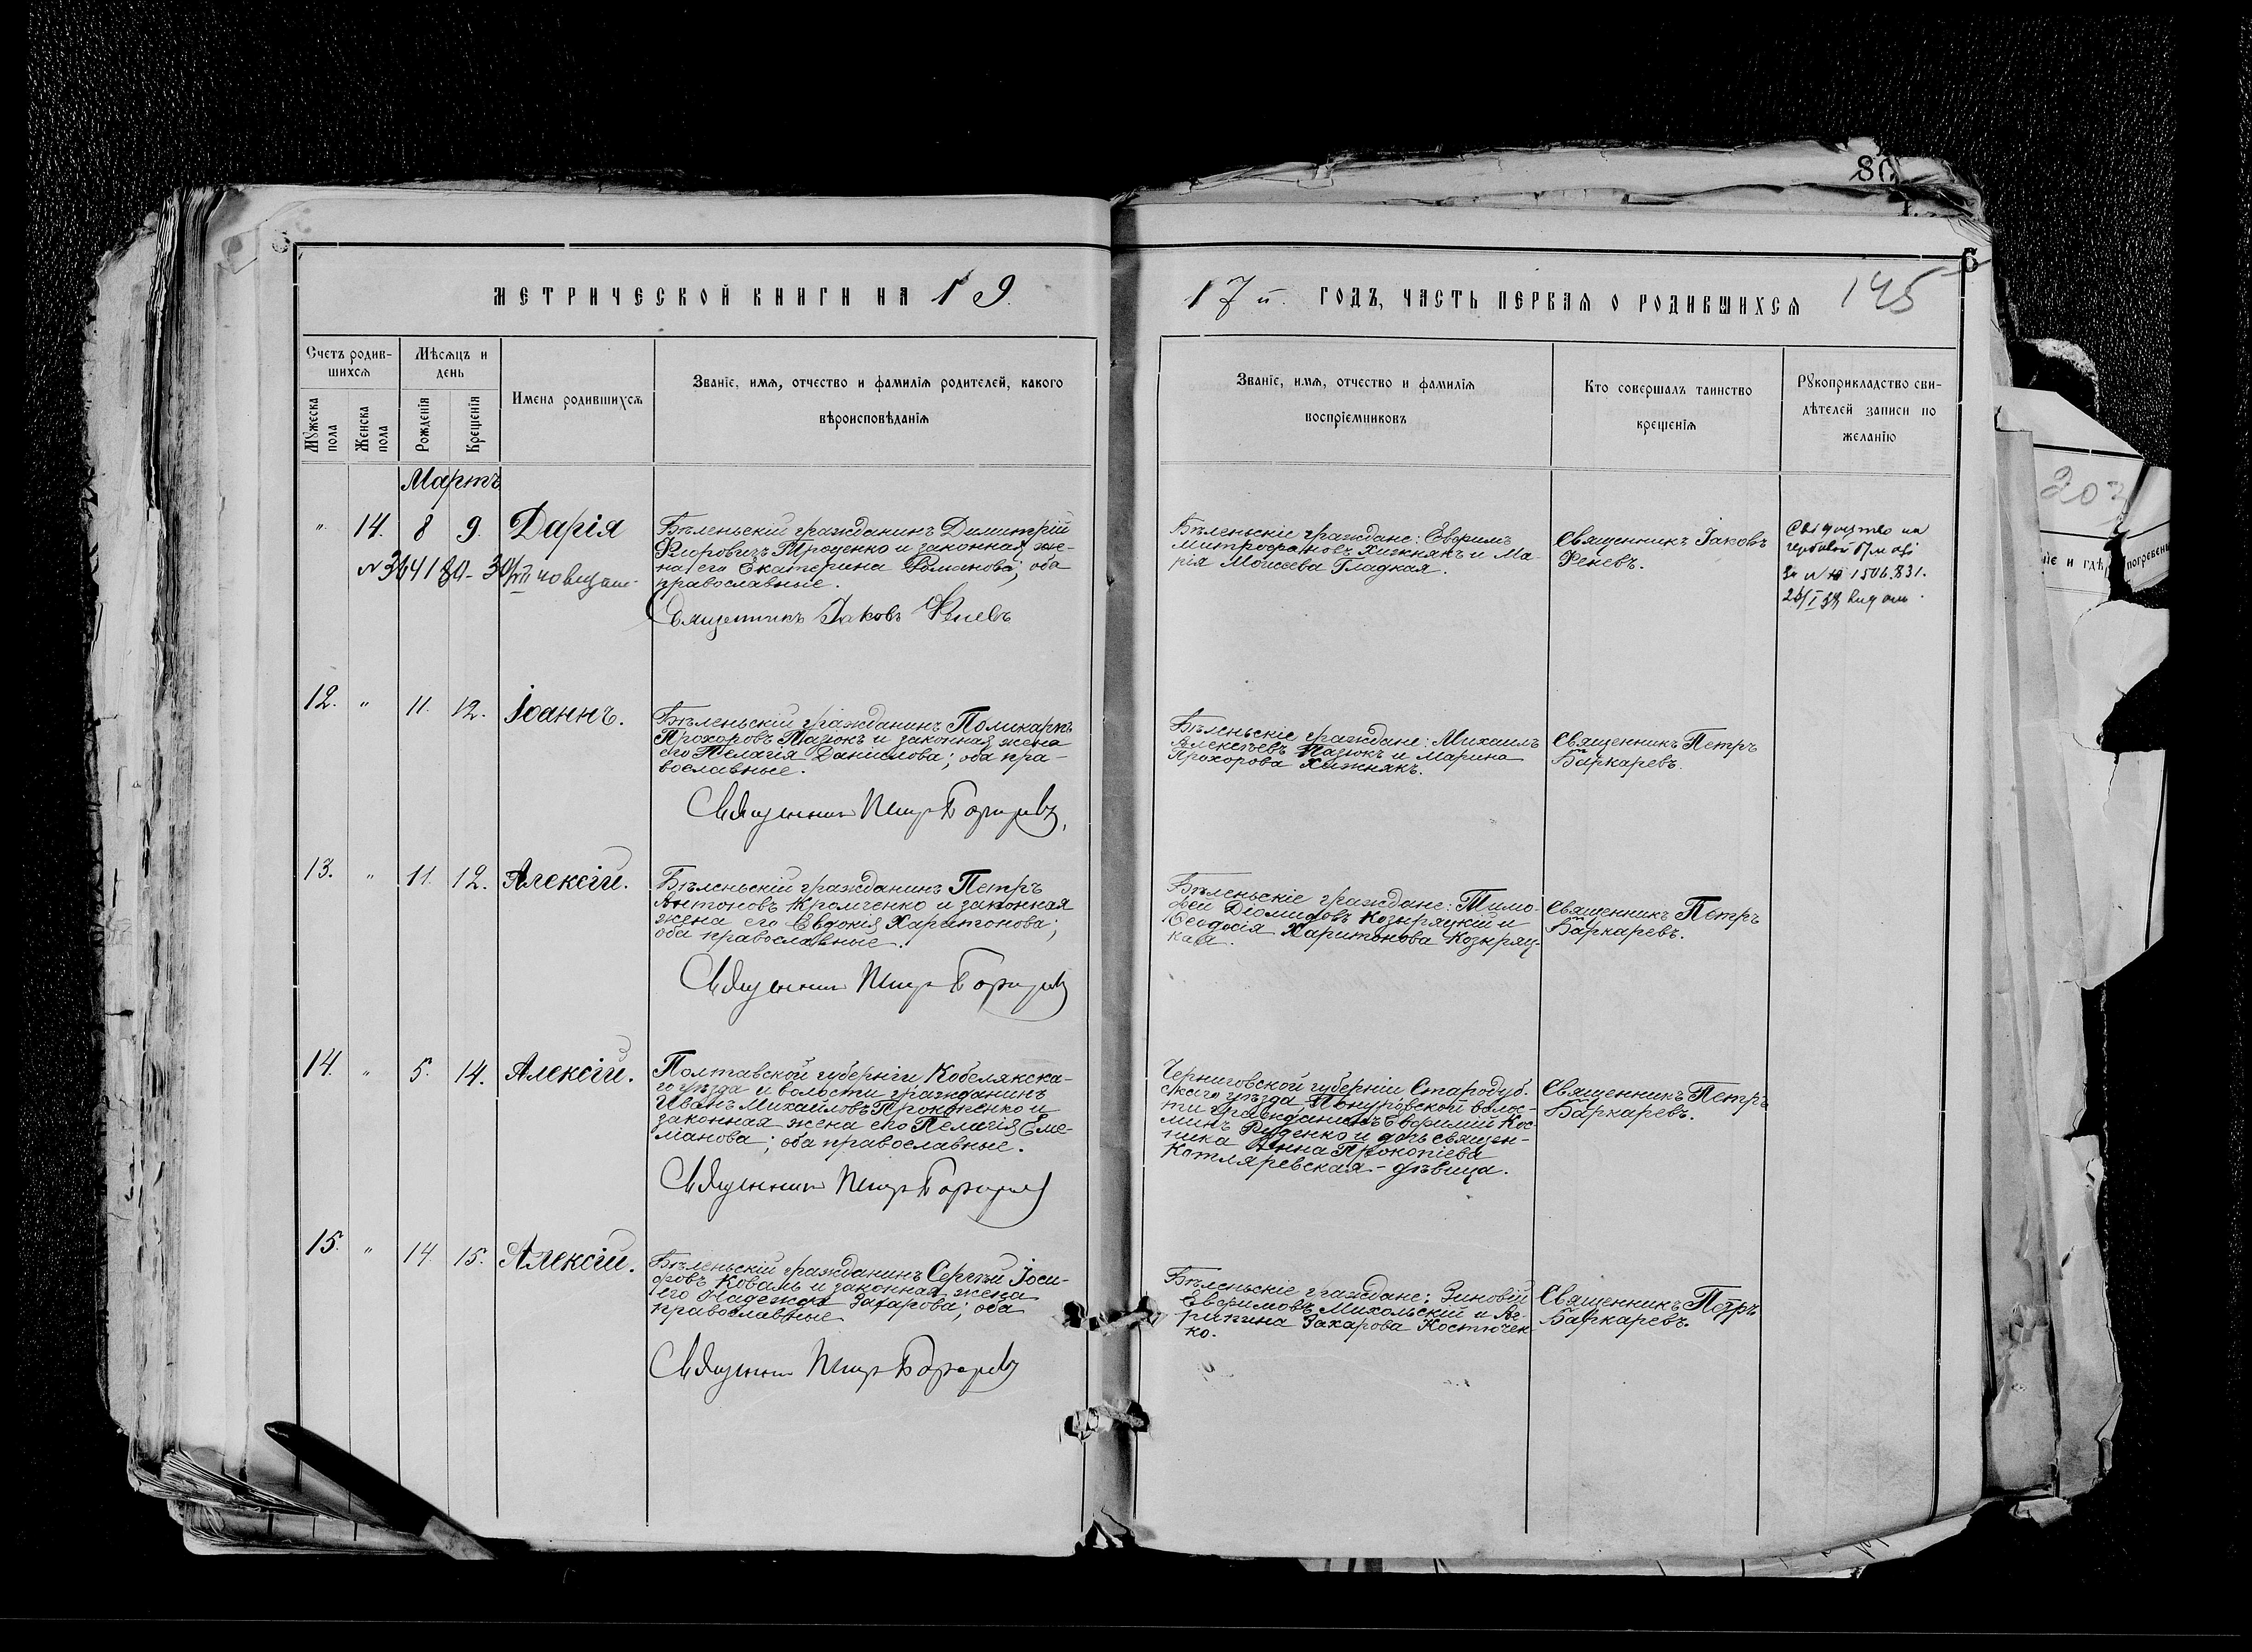 80
6
МЕТРИЧЕСКОЙ КНИГИ НА 19
17й. ГОДЪ, ЧАСТЬ ПЕРВАЯ О РОДИВШИХСЯ 145
Счетъ родив-
шихся
Мужеска
пола
Женска
пола
Мѣсяцъ и
день
Рожденія
Крещенія
Имена родившихся
Званіе, имя, отчество и фамилія родителей, какого
вѣроисповѣданія
Званіе, имя, отчество и фамилія
воспріемниковъ
Кто совершалъ таинство
крещенія
Рукоприкладство сви-
дѣтелей записи по
желанію
Мартъ
" 14. 8 9. Дарія
Бѣленьскій гражданинъ Димитрій
Флоровичъ Троценко и законная же-
на его Екатерина Романова; оба
православные.
Священникъ Іаковъ Феневъ
Бѣленьскіе граждане: Евфимъ
Митрофановъ Хижнякъ и Ма-
рія Моисеева Гладкая.
Священникъ Іаковъ
Феневъ.
12. " 11. 12. Іоаннъ.
Бѣленьскій гражданинъ Поликарпъ
Прохоровъ Пазюкъ и законная жена
его Пелагія Данилова; оба пра-
вославные.
Священникъ Петръ Баркаревъ
Бѣленьскіе граждане: Михаилъ
Алексѣевъ Пазюкъ и Марина
Прохорова Хижнякъ.
Священникъ Петръ
Баркаревъ.
13. " 11. 12. Алексій.
Бѣленьскій гражданинъ Петръ
Антоновъ Кромченко и законная
жена его Евдокія Харитонова;
оба православные.
Священникъ Петръ Баркаревъ
Бѣленьскіе граждане: Тимо-
фей Діомидовъ Козыряцкій и
Ѳеодосія Харитонова Козыряц-
кая.
Священникъ Петръ
Баркаревъ.
14. " 5. 14. Алексій.
Полтавской губерніи, Кобелякска-
го уѣзда и волости гражданинъ
Иванъ Михайловъ Прокопенко и
законная жена его Пелагія Еме-
ліанова; оба православные.
Священникъ Петръ Баркаревъ
Черниговской губерніи Стародуб-
скаго уѣзда, Понуровской волос-
ти гражданинъ Евфимій Кос-
минъ Руденко и дочь священ-
ника Анна Прокопіева
Котляревская - дѣвица.
Священникъ Петръ
Баркаревъ.
15. " 14. 15. Алексій.
Бѣленьскій гражданинъ Сергѣй Іоси-
фовъ Коваль и законная жена
его Надежда Захарова; оба
православные
Священникъ Петръ Баркаревъ
Бѣленьскіе граждане: Зиновій
Евфимовъ Михольскій и Аг-
рипина Захарова Костючен-
ко.
Священникъ Петръ
Баркаревъ.
203